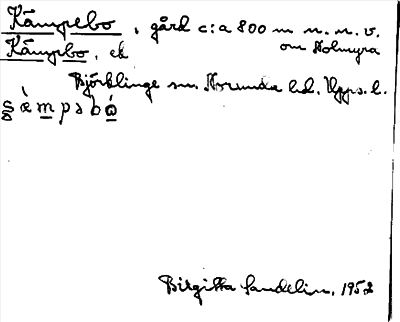 Kämpebo, gård c:a 800 m n.n.v.
om Holmyra
Kämpbo, ek
Björklinge sn. Norunda hd. Upps. l.
Birgitta Sandelin, 1952